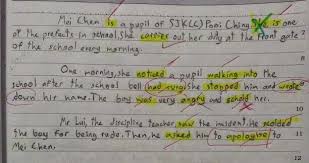 Mei Chen is a pupil of SJK(C) Poni Ching. She is one
of the prefects in school. She carries out her duty at the front gate 2
of the school every morning.
One morning, she noticed a pupil walking into the
school after the school bell had rung. She stopped him and wrote
down his name. The boy was very angry and schold her.
10
Mr Lui, the discipline teacher saw the insident. He scolded
the boy for being rude. Then, he asked him to apologise to 11
Mei Chen.